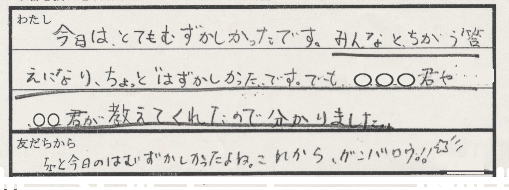 わたし
今日は、とてもむずかしかったです。みんなと、ちがう答
えになり、ちょっとはずかしかった、です。でも、○○○君や
、○○君が教えてくれたので分かりました。
友だちから
ちょっと今日のはむずかしかったよね。これから、ガンバロウ!!